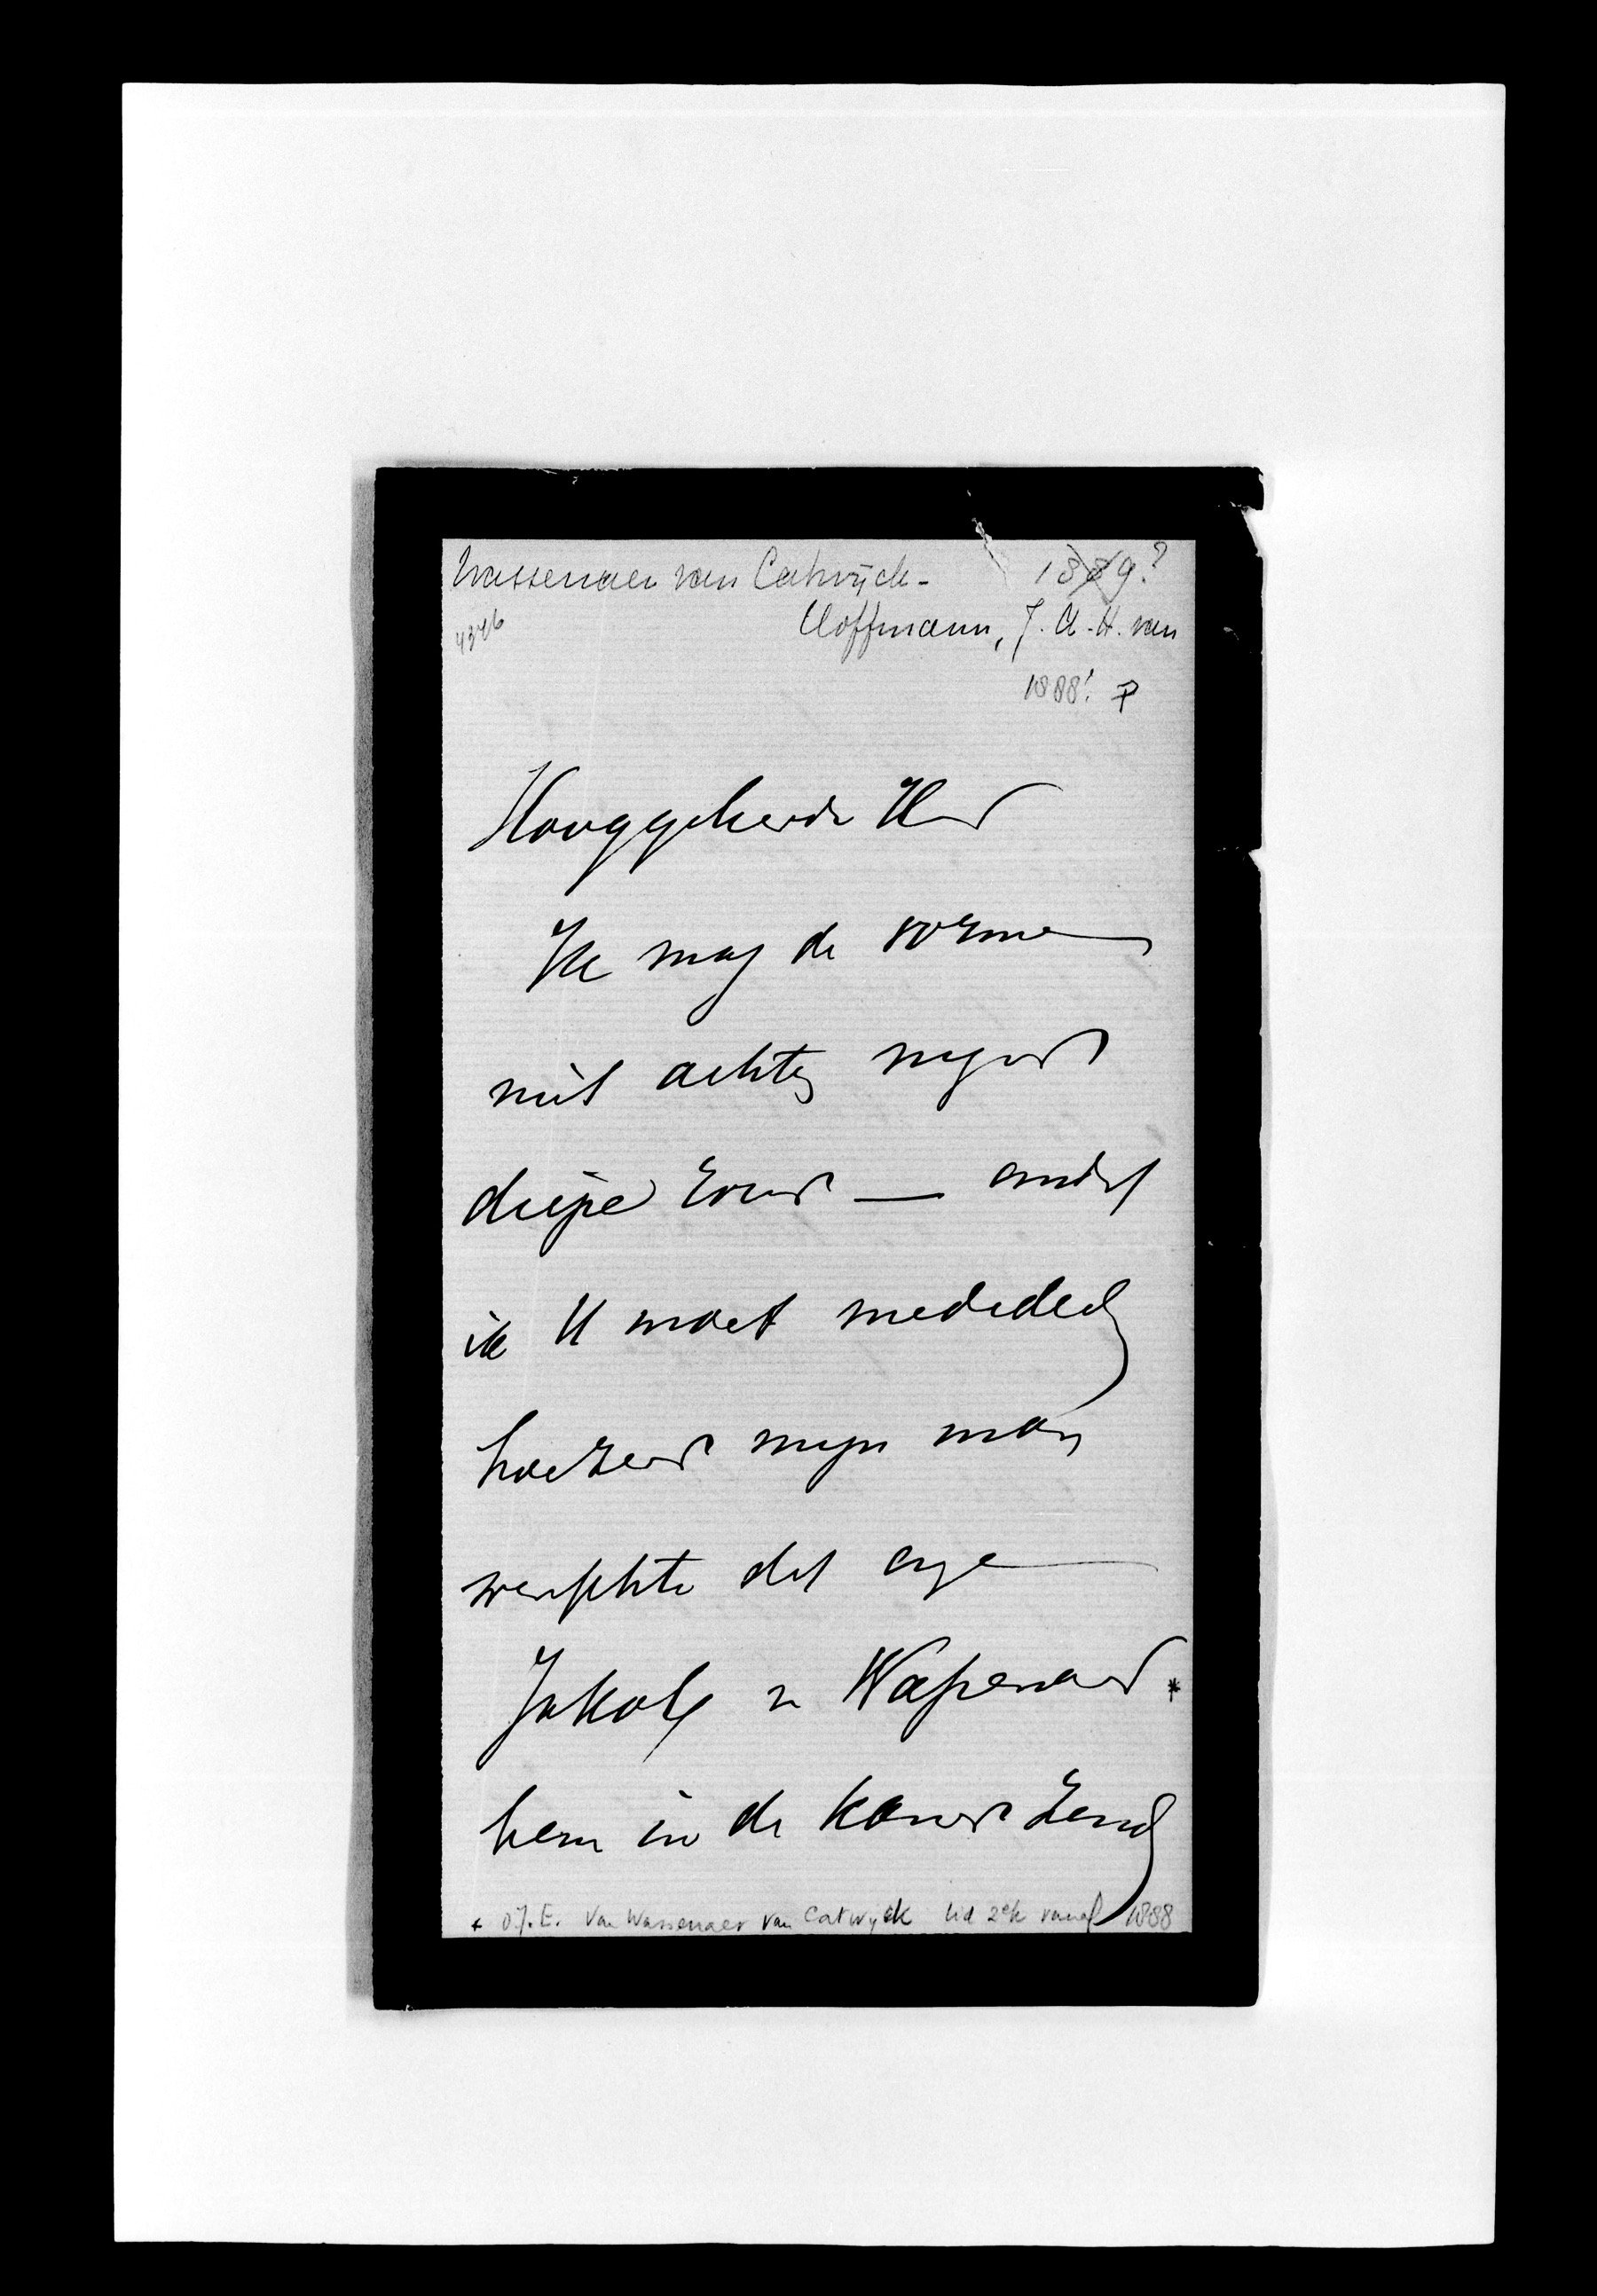 Wassenaer van Catwijck- 1889?
Hoffmann, J. C. H. van
4346
1888!
Hooggeleerde Heer
Ik mag de vorme
niet achter mijner
diepe rouw — omdat
ik U moet mededeelen
hoezeer mijn man
wenschte dat onze
Jakob v Wassenaer *
hem in de kamer zou
* O.J.E. van Wassenaer van Catwyck lid 2ek vanaf 1888